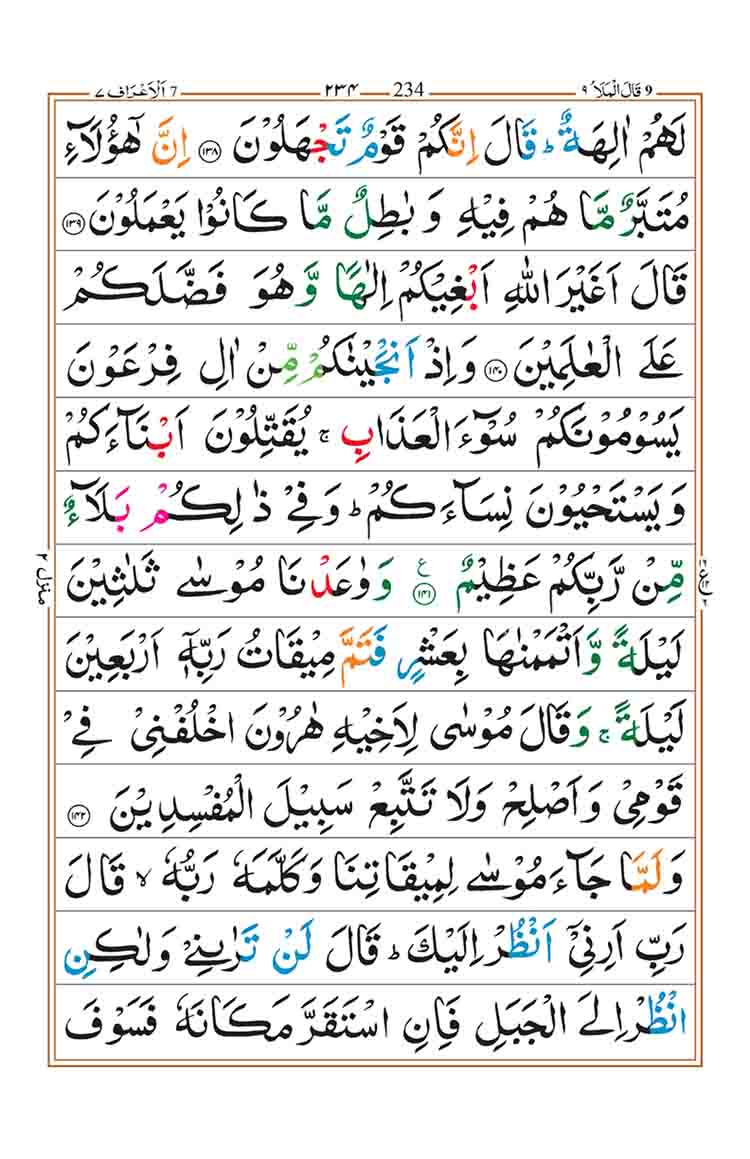 9 قَالَ الْمَلَاُ ۹ 234 ۲۳۴ 7 اَلْاَعْرَاف ۷
لَهُمْ اٰلِهَةٌ ؕ قَالَ اِنَّكُمْ قَوْمٌ تَجْهَلُوْنَ ﴿۱۳۸﴾ اِنَّ هٰۤؤُلَآءِ
مُتَبَّرٌ مَّا هُمْ فِیْهِ وَ بٰطِلٌ مَّا كَانُوْا یَعْمَلُوْنَ ﴿۱۳۹﴾
قَالَ اَغَیْرَ اللّٰهِ اَبْغِیْكُمْ اِلٰهًا وَّ هُوَ فَضَّلَكُمْ
عَلَی الْعٰلَمِیْنَ ﴿۱۴۰﴾ وَ اِذْ اَنْجَیْنٰكُمْ مِّنْ اٰلِ فِرْعَوْنَ
یَسُوْمُوْنَكُمْ سُوْٓءَ الْعَذَابِ ۚ یُقَتِّلُوْنَ اَبْنَآءَكُمْ
وَ یَسْتَحْیُوْنَ نِسَآءَكُمْ ؕ وَ فِیْ ذٰلِكُمْ بَلَآءٌ
مِّنْ رَّبِّكُمْ عَظِیْمٌ ﴿۱۴۱﴾ ع وَ وٰعَدْنَا مُوْسٰی ثَلٰثِیْنَ
لَیْلَةً وَّ اَتْمَمْنٰهَا بِعَشْرٍ فَتَمَّ مِیْقَاتُ رَبِّهٖۤ اَرْبَعِیْنَ
لَیْلَةً ۚ وَ قَالَ مُوْسٰی لِاَخِیْهِ هٰرُوْنَ اخْلُفْنِیْ فِیْ
قَوْمِیْ وَ اَصْلِحْ وَ لَا تَتَّبِعْ سَبِیْلَ الْمُفْسِدِیْنَ ﴿۱۴۲﴾
وَ لَمَّا جَآءَ مُوْسٰی لِمِیْقَاتِنَا وَ كَلَّمَهٗ رَبُّهٗ ۙ قَالَ
رَبِّ اَرِنِیْۤ اَنْظُرْ اِلَیْكَ ؕ قَالَ لَنْ تَرٰىنِیْ وَ لٰكِنِ
انْظُرْ اِلَی الْجَبَلِ فَاِنِ اسْتَقَرَّ مَكَانَهٗ فَسَوْفَ
منزل ۲